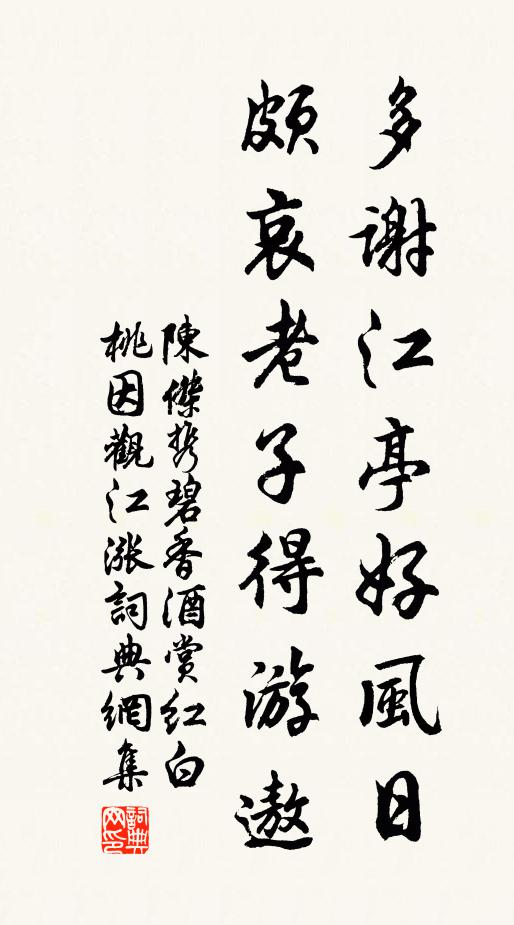 多谢江亭好風日
頗哀老子得游遨
陳傑携碧香酒赏红白
桃因觀江漲詞典網集
詞典網印